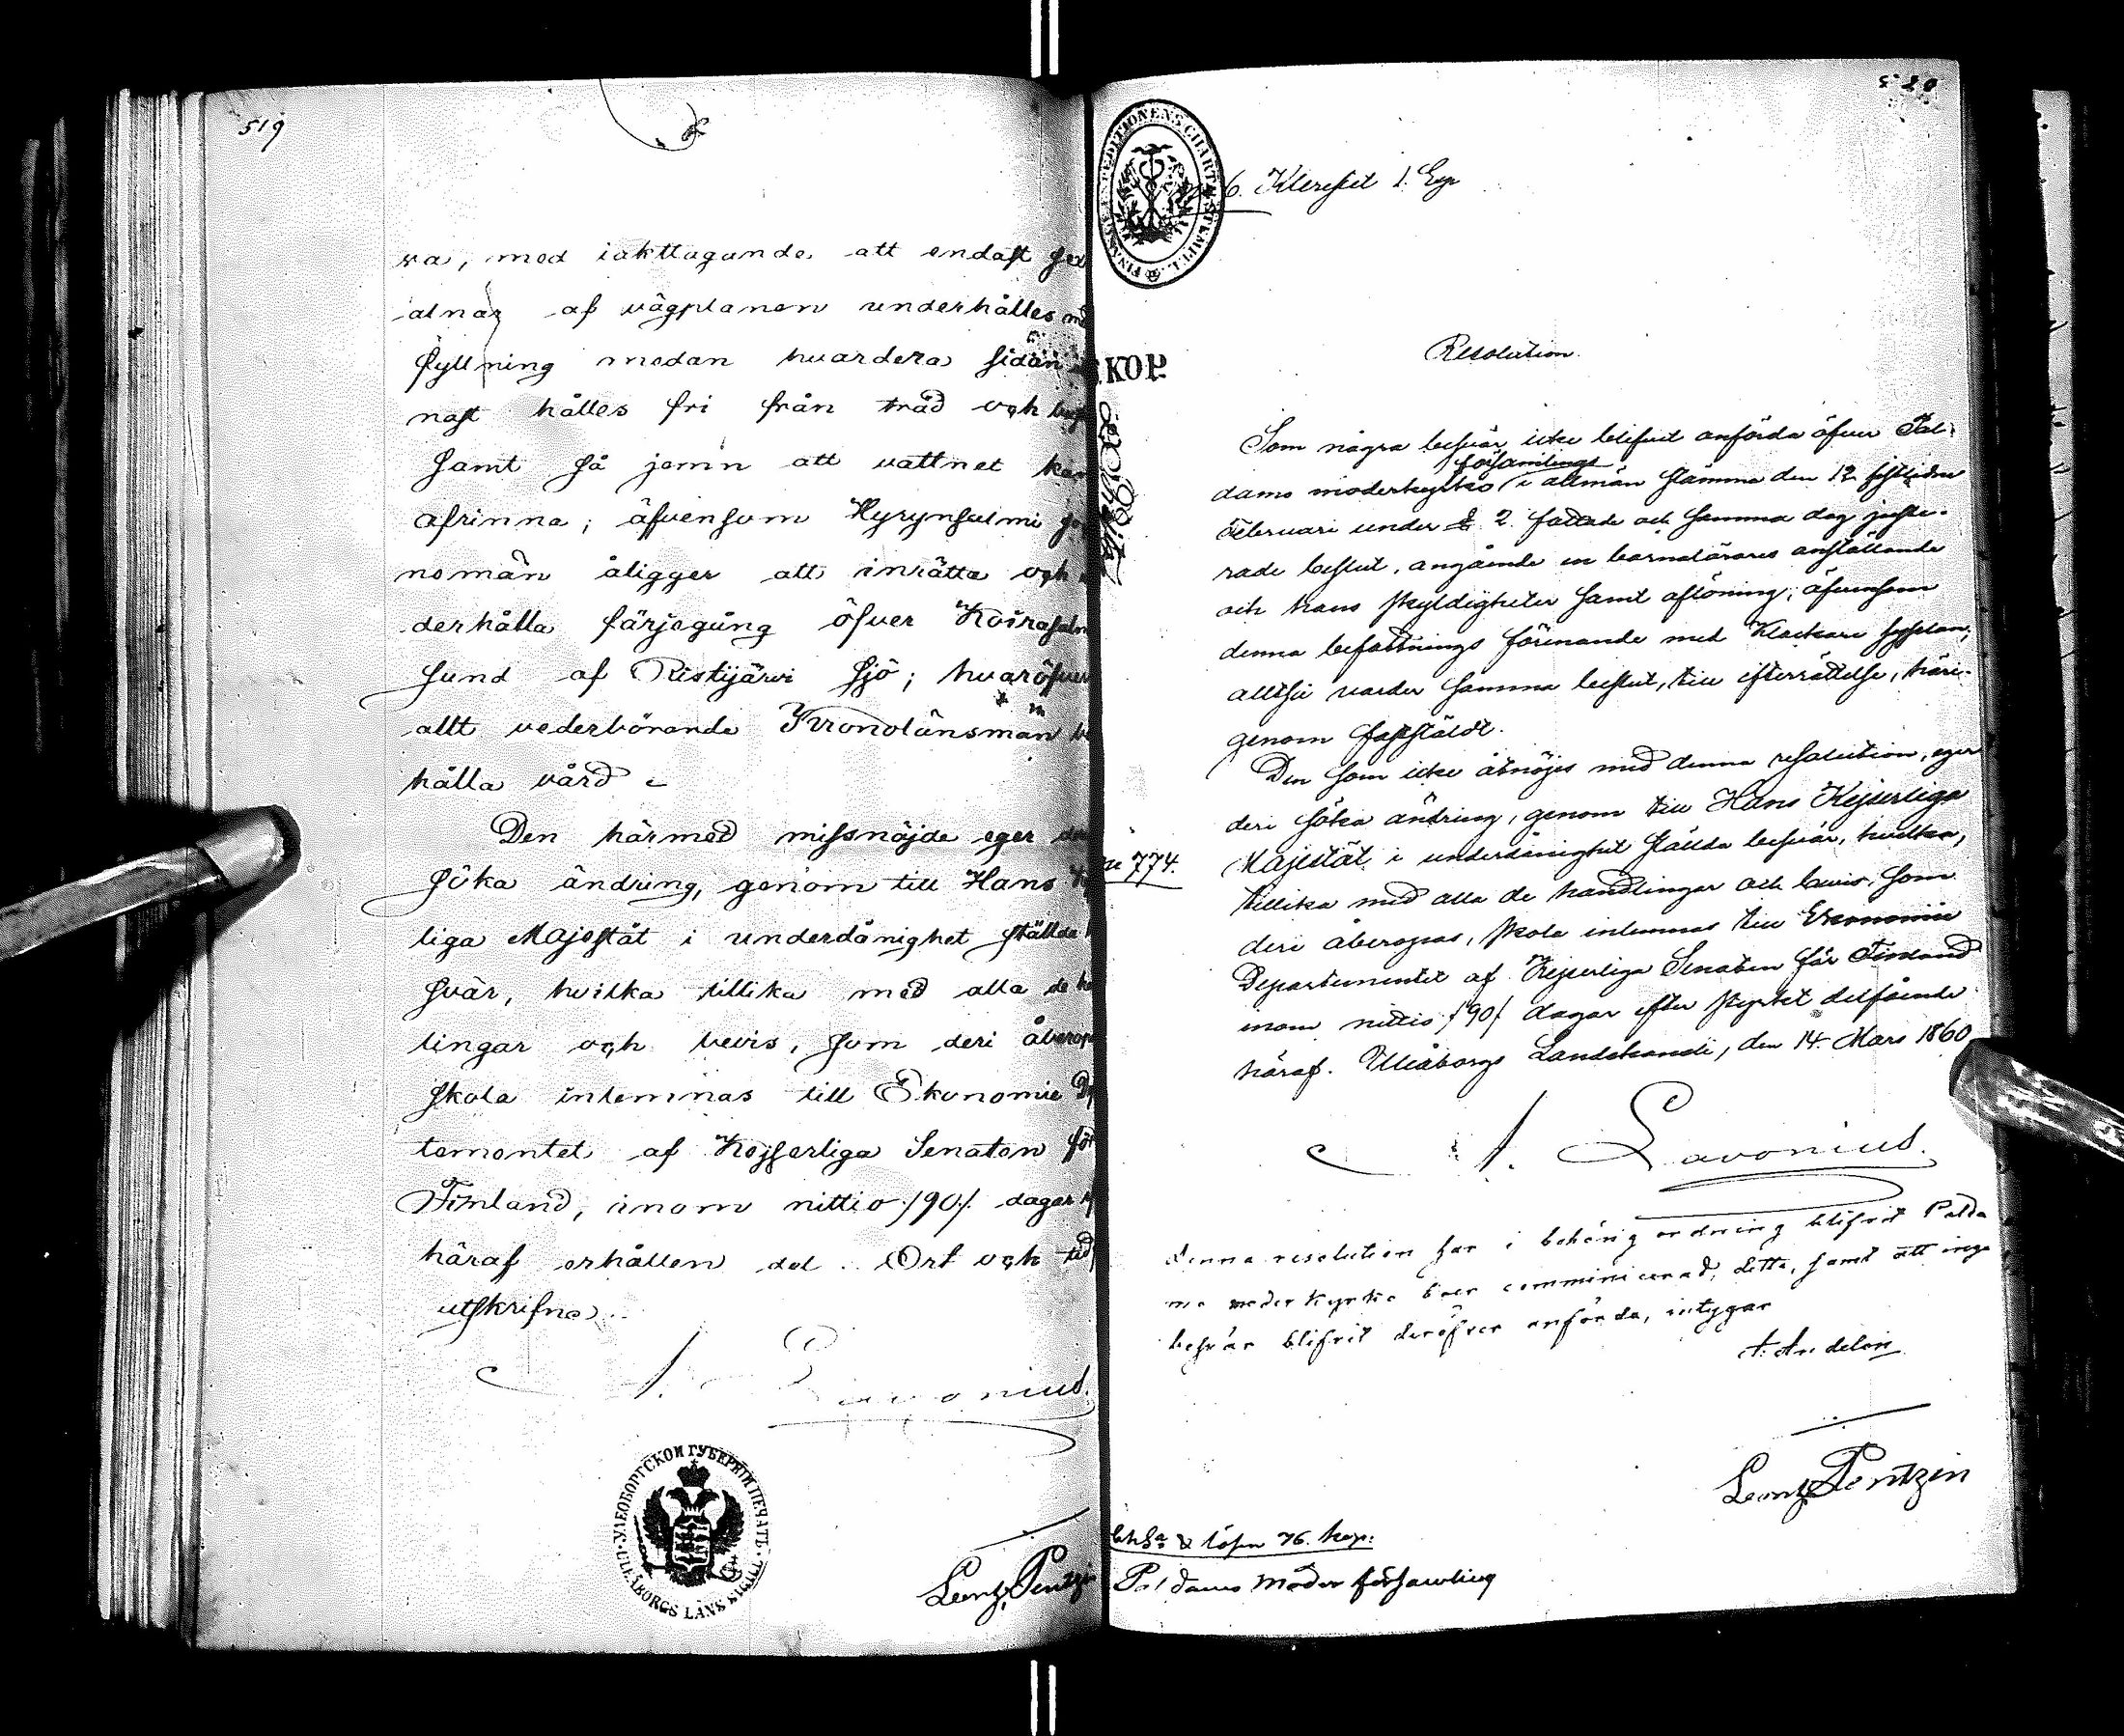 519
ra, med iakttagande att endast sex
alnar af vägplanen underhålles med
fyllning medan hvardera sidan
nast hålles fri från träd och
samt så jemn att vattnet kan
afrinna; äfvensom Hyrynsalmi
nomän åligger att inrätta och
derhålla färjegång öfver
sund af Ristijärvi sjö; hvaröfver
allt vederbörande Kronolänsmän
hålla vård
Den härmed missnöjde eger
söka ändring, genom till Hans
liga Majestät i underdånighet ställda
svär, hvilka tillika med alla de
lingar och bevis, som deri
skola inlemnas till Ekonomie
temontet af Kejserliga Senaten för
Finland, inom nittio /90/. dagar
häraf erhållen del. Ort och tid
utskrifne.
A. Lavonius.
УЛЕОБОРГСКОЙ ГУБЕРНІИ ПЕЧАТЬ
ULEÅBORGS LÄNS SIGILL
Pentzin
520
FINSKA EXPEDITIONENS CHARTÆ STEMPEL
6. Klerefiet 1. Exp
KOP.
Resolution.
Som några besvär icke blifvit anförda öfver Pal-
församlings
damo moderkyrko i allmän stämma den 12 sistledne
Februari under § 2 fattade och samma dag juste-
rade beslut, angående en barnalärares anställande
och hans skyldigheter samt aflöning; äfvensom
denna befattnings förenande med Klockare sysslan;
alltså varder samma beslut, till efterrättelse, häri-
genom fastställdt.
Den som icke åtnöjes med denna resolution, eger
deri söka ändring, genom till Hans Kejserliga
Majestät i underdånighet ställda besvär, hvilka,
774.
tillika med alla de handlingar och bevis, som
deri åberopas, skola inlemnas till Ekonomie
Departementet af Kejserliga Senaten för Finland
inom nittio /90/ dagar efter styrket delfående
häraf. Uleåborgs Landskansli, den 14 Mars 1860
A. Lavonius.
Denna resolution har i behörig ordning blifvit Palda
mo moderkyrko boer comminicerad; detta, samt att inga
besvär blifvit deröfver anförda, intygar
A. Andelin
Pentzin
lösen 76. kop:
Paldamo Moder församling